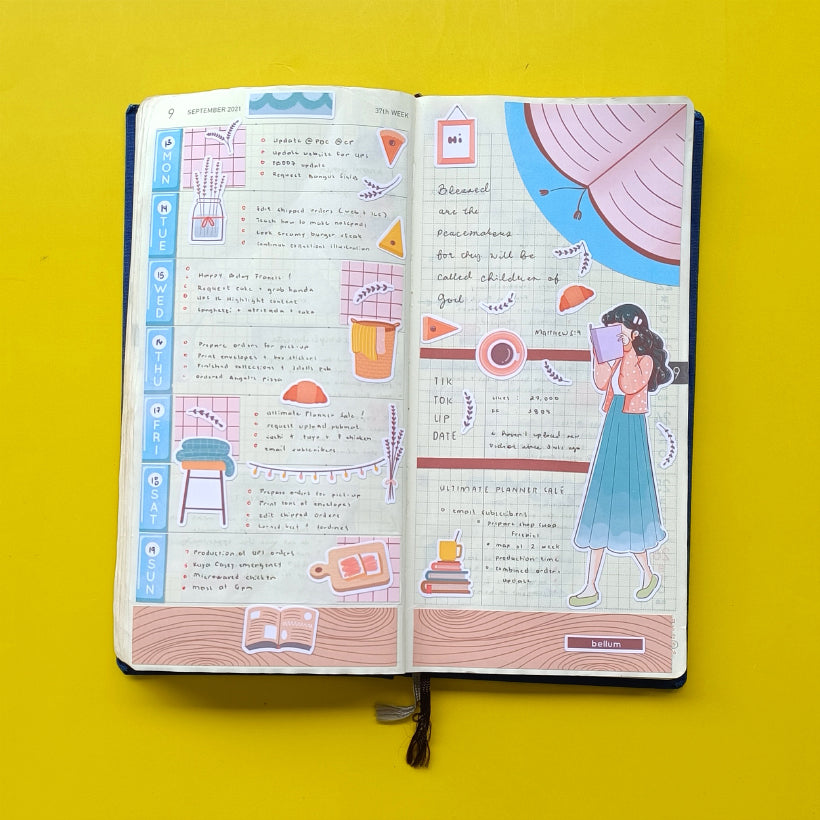 9 SEPTEMBER 2021
37th WEEK
13 MON
Update @ PDC @ CP
Update website for UPS
update
Request Bangus fields
14 TUE
Edit shipped orders (web + IG)
Teach how to make notepads
Cook creamy burger steak
Continue collections illustration
15 WED
Happy Bday Francis !
Request cake + grab handa
Highlight content
Spaghetti + + cake
16 THU
Prepare orders for pick-up
Print envelopes + box stickers
Finished collections +
ordered Angel's pizza
17 FRI
Ultimate Planner Sale !
request upload
+ + chicken
email subscribers
18 SAT
Prepare orders for pick-up
Print tons of envelopes
Edit shipped orders
Corned beef + Sardines
19 SUN
Production of UPS orders
Kuya Casey emergency
Microwaved chicken
Mass at 6pm
Hi
Blessed
are the
Peacemakers
for they will be
called children of
God
Matthew 5:9
TIK
TOK
UP
DATE
Likes 29,000
Haven't upload new
videos since
ULTIMATE PLANNER SALE
email subscribers
Prepare shop swap
Freebies
map of 2 week
production time
combined orders
update
bellum